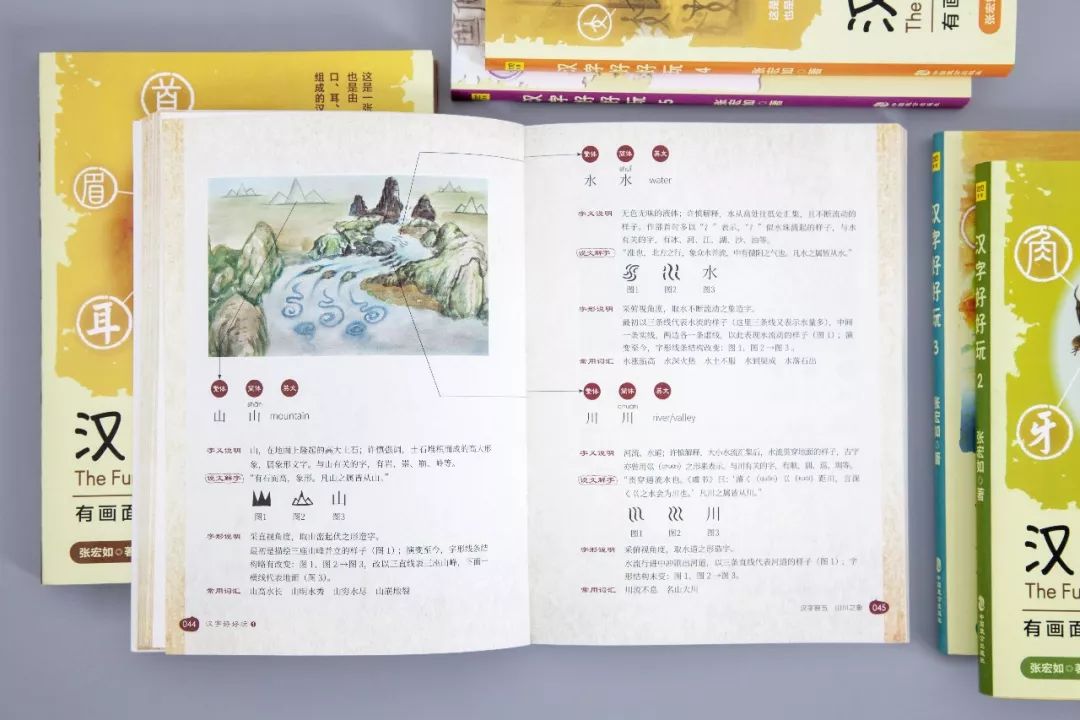 首
眉
耳
这是一张
也是由
口、耳、
组成的汉
汉
The Fu
有画面
张宏如◎著
繁体 简体 英文
shān
山 山 mountain
字义说明 山，在地面上隆起的高大土石；许慎强调，土石堆积而成的高大形
象，属象形文字。与山有关的字，有岩、崇、崩、岭等。
说文解字 “有石而高，象形。凡山之属皆从山。”
图1 图2 图3
字形说明 采直视角度，取山峦起伏之形造字。
最初是描绘三座山峰并立的样子（图1）；演变至今，字形线条结
构略有改变：图1、图2→图3，改以三直线表三座山峰，下面一
横线代表地面（图3）。
常用词汇 山高水长 山明水秀 山穷水尽 山崩地裂
044 汉字好好玩 1
繁体 简体 英文
shuǐ
水 水 water
字义说明 无色无味的液体；许慎解释，水从高处往低处汇集，且不断流动的
样子。作部首时多以“氵”表示，“氵”似水珠溅起的样子，与水
有关的字，有冰、河、江、湖、沙、油等。
说文解字 “准也，北方之行，象众水并流，中有微阳之气也。凡水之属皆从水。”
图1 图2 图3
字形说明 采俯视角度，取水不断流动之象造字。
最初以三条线代表水流的样子（这里三条线又表示水量多），中间
一条实线，两边各一条虚线，以此表现水流动的样子（图1）；演
变至今，字形线条结构改变：图1、图2→图3。
常用词汇 水涨船高 水深火热 水土不服 水到渠成 水落石出
繁体 简体 英文
chuān
川 川 river/valley
字义说明 河流、水道；许慎解释，大小水流汇集后，水流贯穿地面的样子，古字
说文解字 “贯穿通流水也。
图1 图2 图3
字形说明 采俯视角度，取水道之形造字。
水流行进中冲激出河道，以三条直线代表河道的样子（图1）；字
形结构未变：图1、图2→图3。
常用词汇 川流不息 名山大川
山川之象 045
汉
The
有画
张宏如
汉字好好玩 4 张宏如◎著
汉字好好玩 5 张宏如◎著
汉字好好玩 3 张宏如◎著
汉字好好玩 2 张宏如◎著
角
牙
汉
The Fu
有画面
张宏如◎著